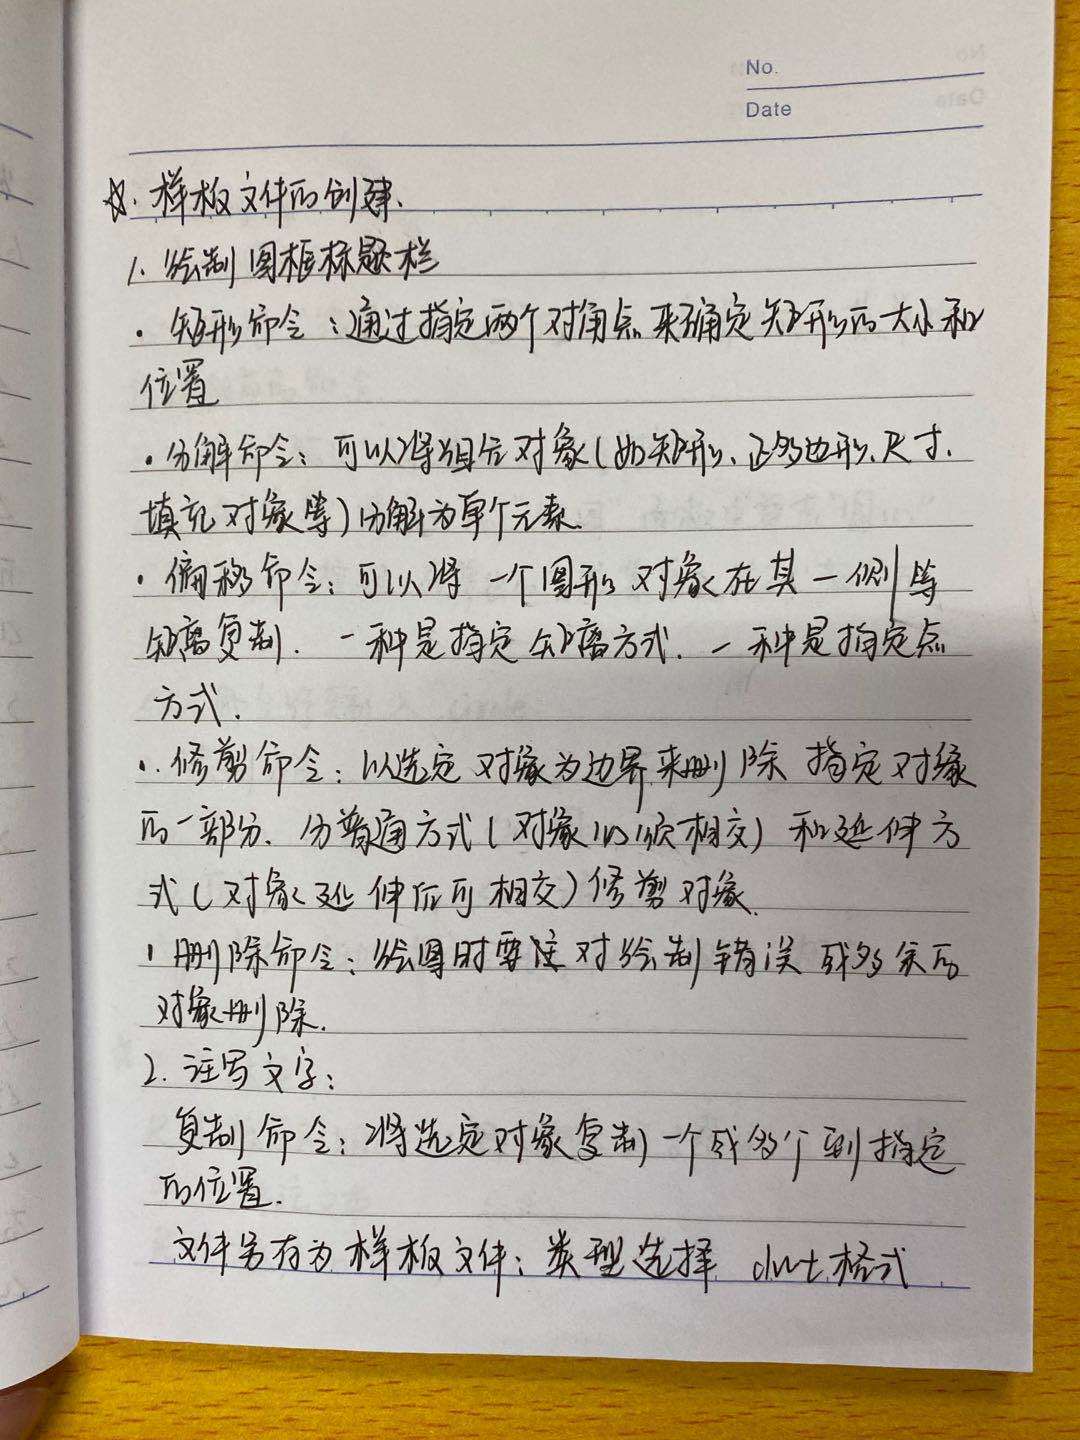 No.
Date
☆. 样板文件的创建.
1. 绘制图框标题栏
· 矩形命令：通过指定两个对角点来确定矩形的大小和
位置
· 分解命令：可以将组合对象(如矩形、正多边形、尺寸、
填充对象等)分解为单个元素.
· 偏移命令：可以将一个图形对象在其一侧等
距离复制. 一种是指定距离方式. 一种是指定点
方式.
· 修剪命令：以选定对象为边界来删除指定对象
的一部分. 分普通方式(对象必须相交)和延伸方
式(对象延伸后可相交)修剪对象.
· 删除命令：绘图时要注对绘制错误或多余的
对象删除.
2. 注写文字：
复制命令：将选定对象复制一个或多个到指定
的位置.
文件另存为样板文件：类型选择 dwt格式